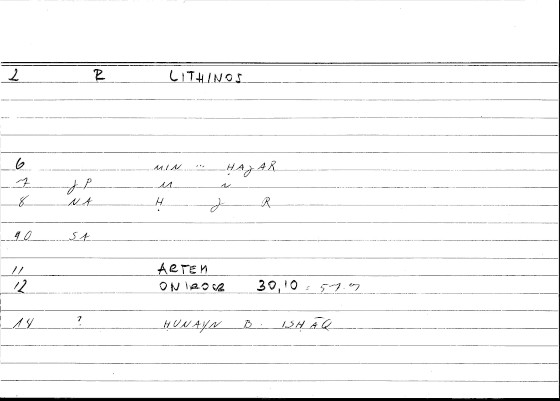 2 R LITHINOS
6 MIN ... ḤAJAR
7 JP M N
8 NA Ḥ J R
10 SA
11 ARTEM
12 ONIROCR 30,10 =
14 ? HUNAYN B. ISḤĀQ